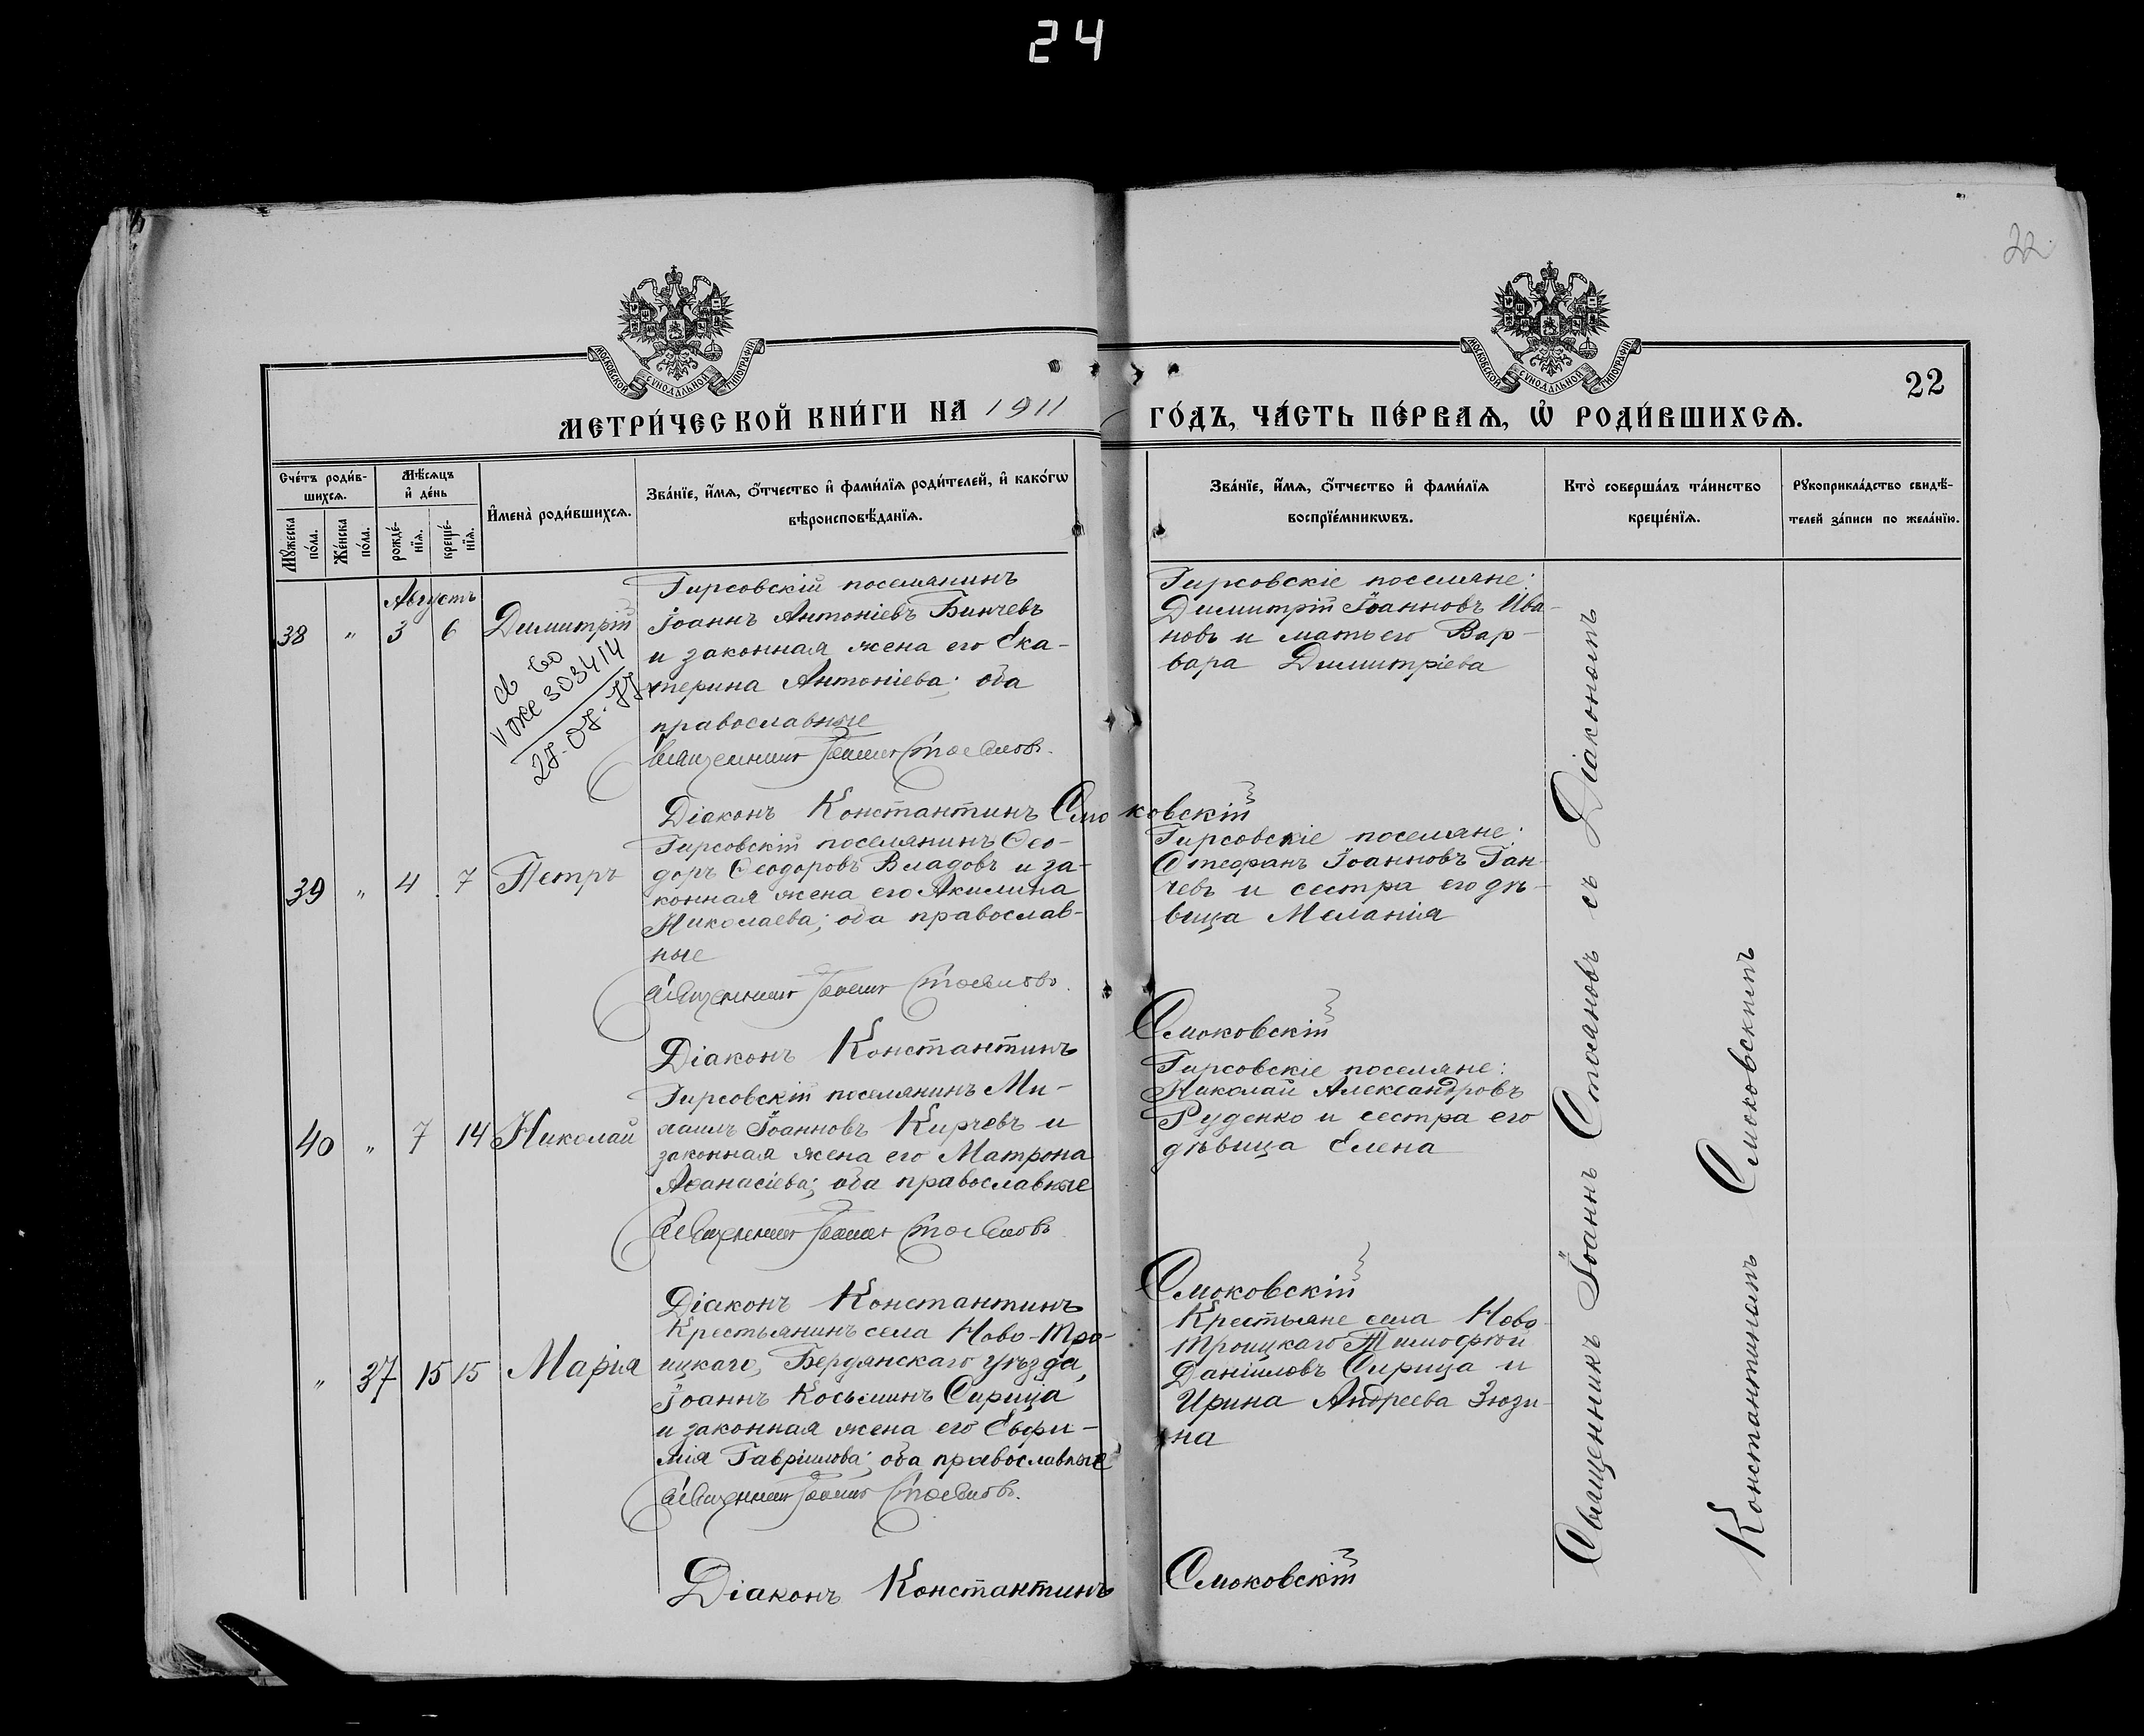 24
22
МОСКОВСКОЙ СѴНОДАЛЬНОЙ ТИПОГРАФІИ
МОСКОВСКОЙ СѴНОДАЛЬНОЙ ТИПОГРАФІИ
22
МЕТРИ́ЧЕСКОЙ КНИ́ГИ НА 1911 ГО́ДЪ, ЧА́СТЬ ПЕ́РВАѦ, Ѡ҆ РОДИ́ВШИХСѦ.
Сче́тъ роди́в-
шихсѧ.
Мѣ́сѧцъ
и҆ де́нь
Мꙋ́жеска
по́ла.
Же́нска
по́ла.
рожде́-
нїѧ.
креще́-
нїѧ.
И҆мена̀ роди́вшихсѧ.
Зва́нїе, и҆́мѧ, ѻ҆́тчество и҆ фами́лїѧ роди́телей, и҆ како́гѡ
вѣроисповѣ́данїѧ.
Зва́нїе, и҆́мѧ, ѻ҆́тчество и҆ фами́лїѧ
воспрїе́мникѡвъ.
Кто̀ соверша́лъ та́инство
креще́нїѧ.
Рꙋкоприкла́дство свидѣ́-
телей за́писи по жела́нїю.
Августъ
38 " 3 6 Димитрій
303414
Гирсовскій поселянинъ
Іоаннъ Антоніевъ Бинчевъ
и законная жена его Ека-
терина Антоніева; оба
православные
Священникъ Іоаннъ Стояновъ.
Діаконъ Константинъ Смоковскій
Гирсовскіе поселяне:
Димитрій Іоанновъ Ива-
новъ и мать его Вар-
вара Димитріева
39 " 4 7 Петръ
Гирсовскій поселянинъ Ѳео-
доръ Ѳеодоровъ Владовъ и за-
конная жена его Акилина
Николаева; оба православ-
ные
Священникъ Іоаннъ Стояновъ.
Діаконъ Константинъ Смоковскій
Гирсовскіе поселяне:
Стефанъ Іоанновъ Ган-
чевъ и сестра его дѣ-
вица Меланія
40 " 7 14 Николай
Гирсовскій поселянинъ Ми-
хаилъ Іоанновъ Кирчевъ и
законная жена его Матрона
Аѳанасіева; оба православные
Священникъ Іоаннъ Стояновъ
Діаконъ Константинъ Смоковскій
Гирсовскіе поселяне:
Николай Александровъ
Руденко и сестра его
дѣвица Елена
" 37 15 15 Марія
Крестьянинъ села Ново-Тро-
ицкаго, Бердянскаго уѣзда,
Іоаннъ Косьминъ Сирица
и законная жена его Евфи-
мія Гавріилова; оба православные
Священникъ Іоаннъ Стояновъ.
Діаконъ Константинъ Смоковскій
Крестьяне села Ново-
Троицкаго Тимоѳей
Даніиловъ Сирица и
Ирина Андреева Зюзи-
на
Священникъ Іоаннъ Стояновъ съ Діакономъ
Константиномъ Смоковскимъ